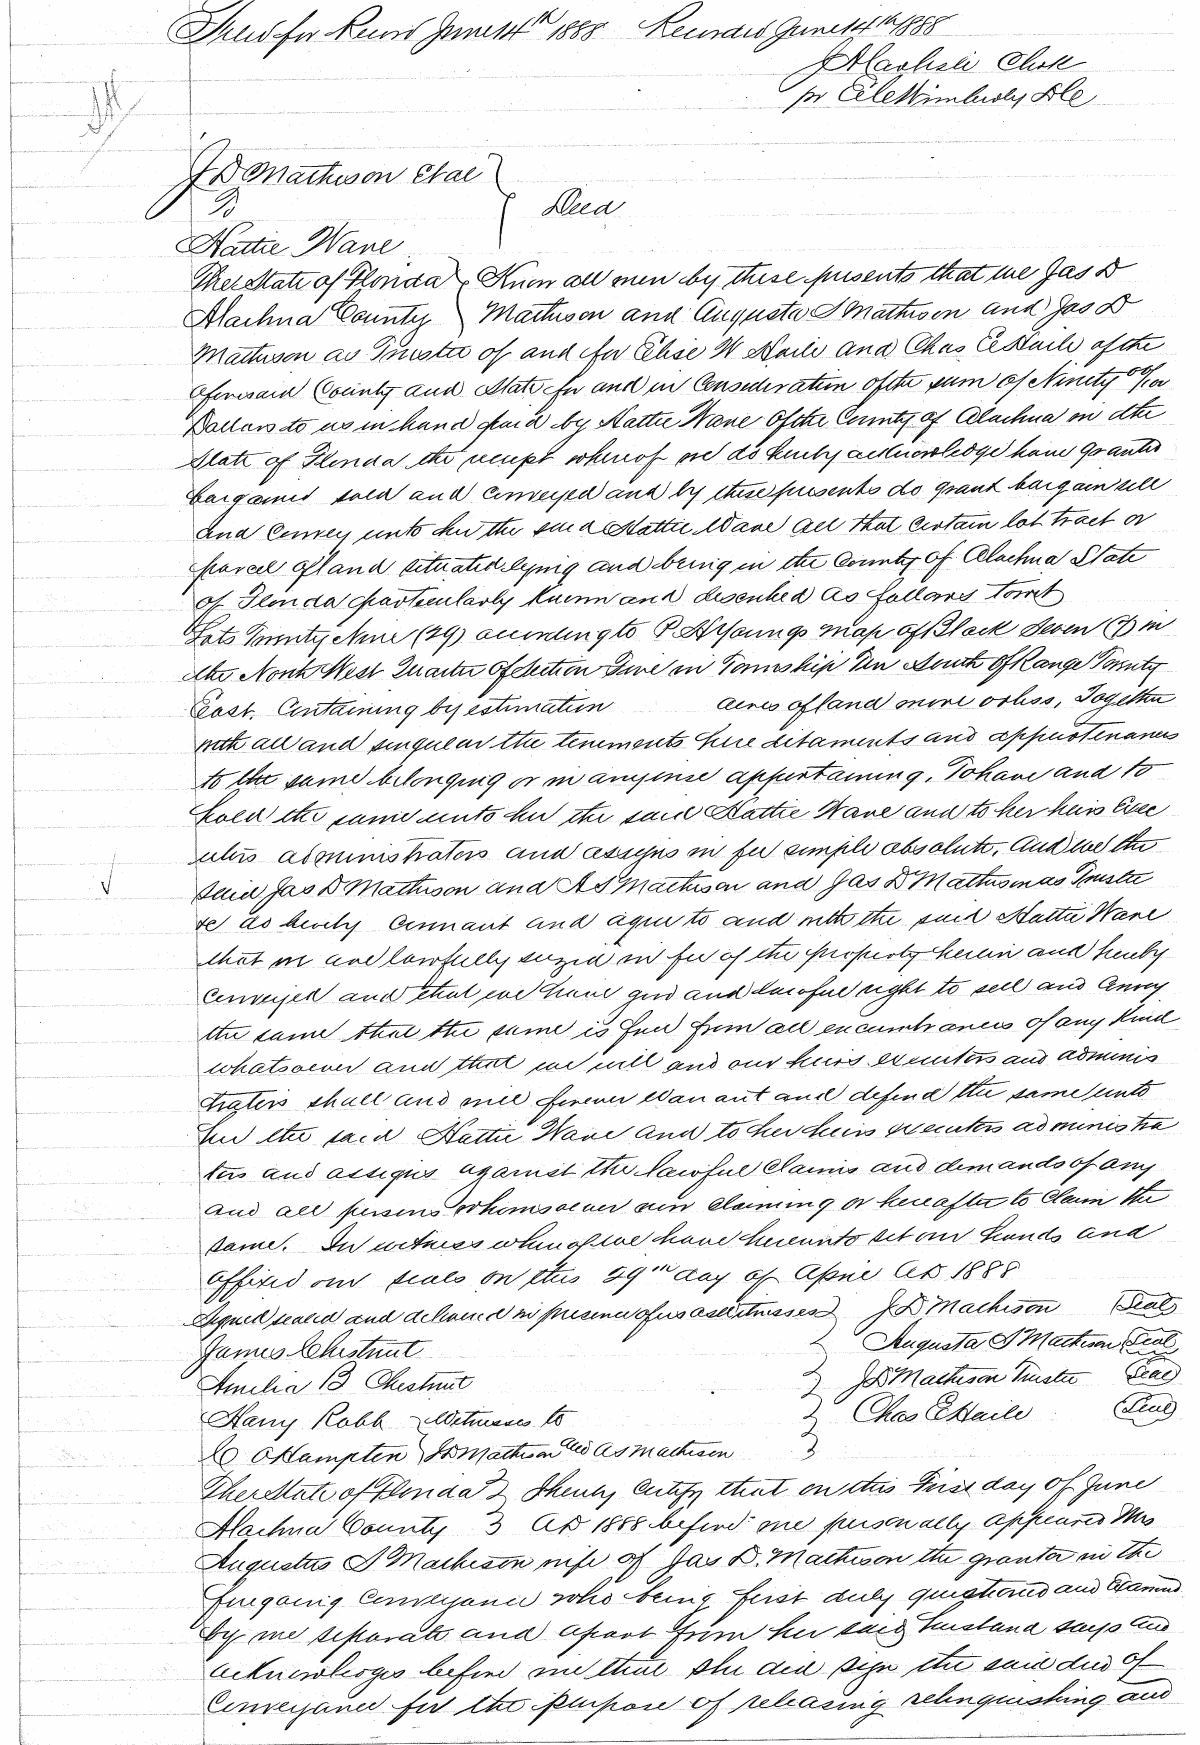 Filed for Record June 14th 1888 Recorded June 14th 1888
J A Carlisle Clerk
pr Wimberly DC
J D Matheson Etal
To
Deed
Hattie Wane
The State of Florida } Know all men by these presents that we Jas D
Alachua County } Matheson and Augusta S Matheson and Jas D
Matheson as Trustee of and for Elise W Haile and Chas E Haile of the
aforesaid County and State for and in Consideration of the sum of Ninety 00/100
Dollars to us in hand paid by Hattie Wane of the County of Alachua in the
State of Florida the receipt whereof we do hereby acknowledge have granted
bargained sold and conveyed and by these presents do grant bargain sell
and Convey unto her the said Hattie Wane all that certain lot tract or
parcel of land situated lying and being in the County of Alachua State
of Florida particularly known and described as follows towit
Lots Twenty Nine (29) according to P A Youngs map of Block Seven (7) in
the North West Quarter of Section Five in Township Ten South of Range Twenty
East. Containing by estimation acres of land more or less, Together
with all and singular the tenements hereditaments and appurtenances
to the same belonging or in anywise appertaining. To have and to
hold the same unto her the said Hattie Wane and to her heirs Exec
utors administrators and assigns in fee simple absolute. And we the
said Jas D Matheson and A S Matheson and Jas D Matheson as Trustee
&c do hereby covenant and agree to and with the said Hattie Wane
that we are lawfully seized in fee of the property herein and hereby
conveyed and that we have good and lawful right to sell and convey
the same that the same is free from all encumbrances of any kind
whatsoever and that we will and our heirs executors and adminis
trators shall and will forever warrant and defend the same unto
her the said Hattie Wane and to her heirs executors administra
tors and assigns against the lawful claims and demands of any
and all persons whomsoever now claiming or hereafter to claim the
same. In witness whereof we have hereunto set our hands and
affixed our seals on this 29th day of April AD 1888
Signed sealed and delivered in presence of us as witnesses } J D Matheson (Seal)
James Chestnut } Augusta S Matheson (Seal)
Amelia B Chestnut } J D Matheson Trustee (Seal)
Harry Robb } Witnesses to } Chas E Haile (Seal)
C O Hampton } J D Matheson and A S Matheson }
The State of Florida } I hereby Certify that on this First day of June
Alachua County } AD 1888 before me personally appeared Mrs
Augustus S Matheson wife of Jas D. Matheson the grantor in the
foregoing conveyance who being first duly questioned and examined
by me separate and apart from her said husband says and
acknowledges before me that she did sign the said deed of
Conveyance for the purpose of releasing relinquishing and